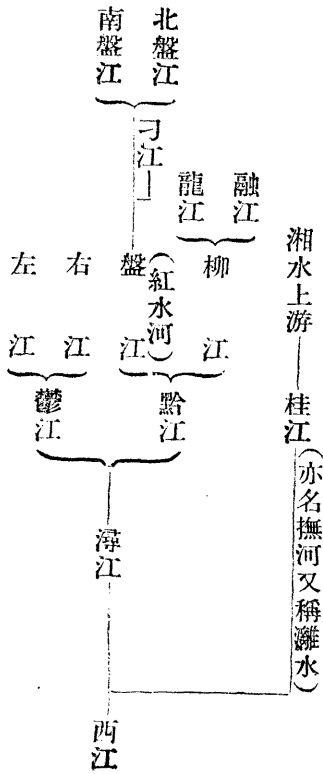 湘水上游
桂江（亦名撫河又稱灕水）
融江
龍江
柳江
北盤江
南盤江
刁江
盤江（紅水河）
右江
左江
黔江
鬱江
潯江
西江